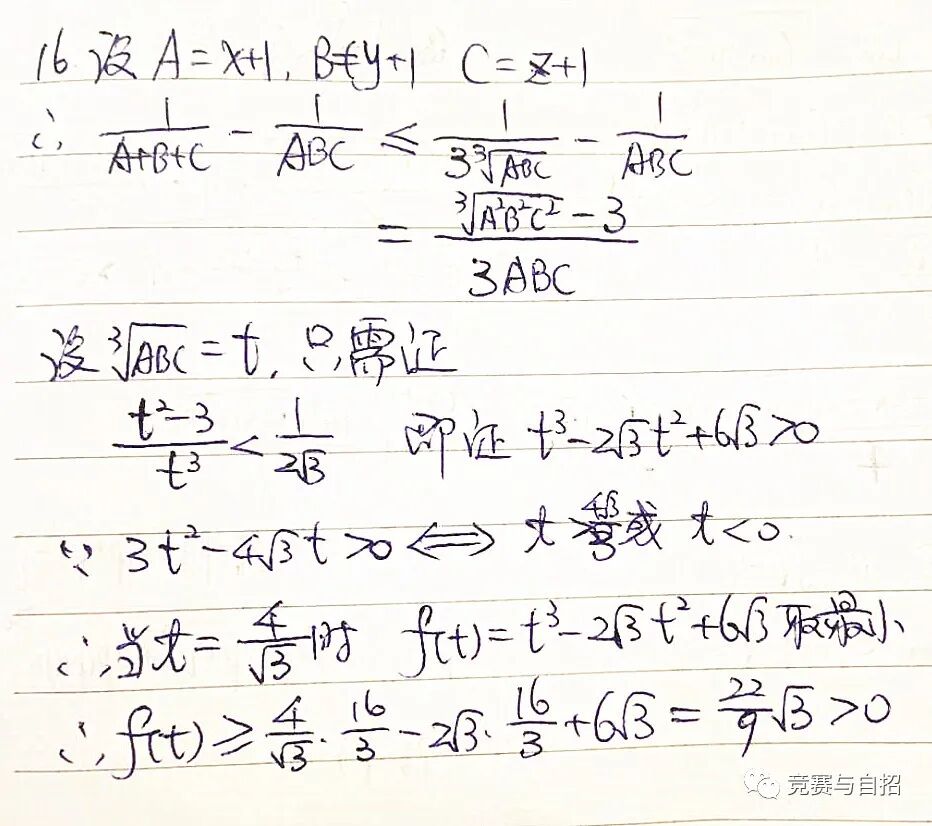 16. 设 A=x+1, B=y+1 C=z+1
∴ 1/(A+B+C) - 1/(ABC) ≤ 1/(3∛(ABC)) - 1/(ABC)
= (∛(A²B²C²) - 3)/(3ABC)
设 ∛(ABC) = t, 只需证
(t²-3)/t³ < 1/(2√3) 即证 t³-2√3t²+6√3>0
∵ 3t²-4√3t>0 ⟺ t>4√3/3 或 t<0.
∴当t=4/√3时 f(t)=t³-2√3t²+6√3取最小
∴ f(t)≥4/√3·16/3-2√3·16/3+6√3=22/9√3>0
竞赛与自招